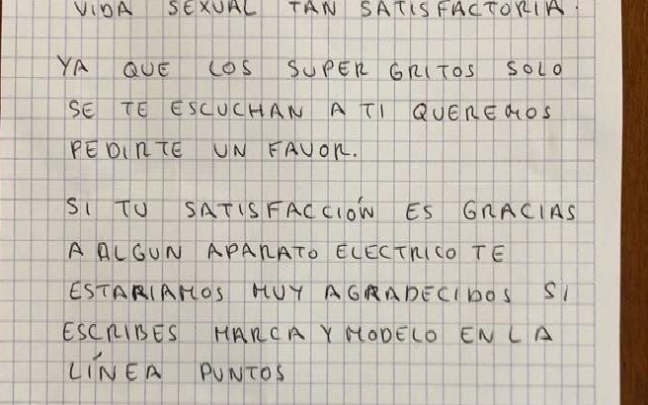 VIDA SEXUAL TAN SATISFACTORIA.
YA QUE LOS SUPER GRITOS SOLO
SE TE ESCUCHAN A TI QUEREMOS
PEDIRTE UN FAVOR.
SI TU SATISFACCIÓN ES GRACIAS
A ALGUN APARATO ELECTRICO TE
ESTARIAMOS MUY AGRADECIDOS SI
ESCRIBES MARCA Y MODELO EN LA
LÍNEA PUNTOS